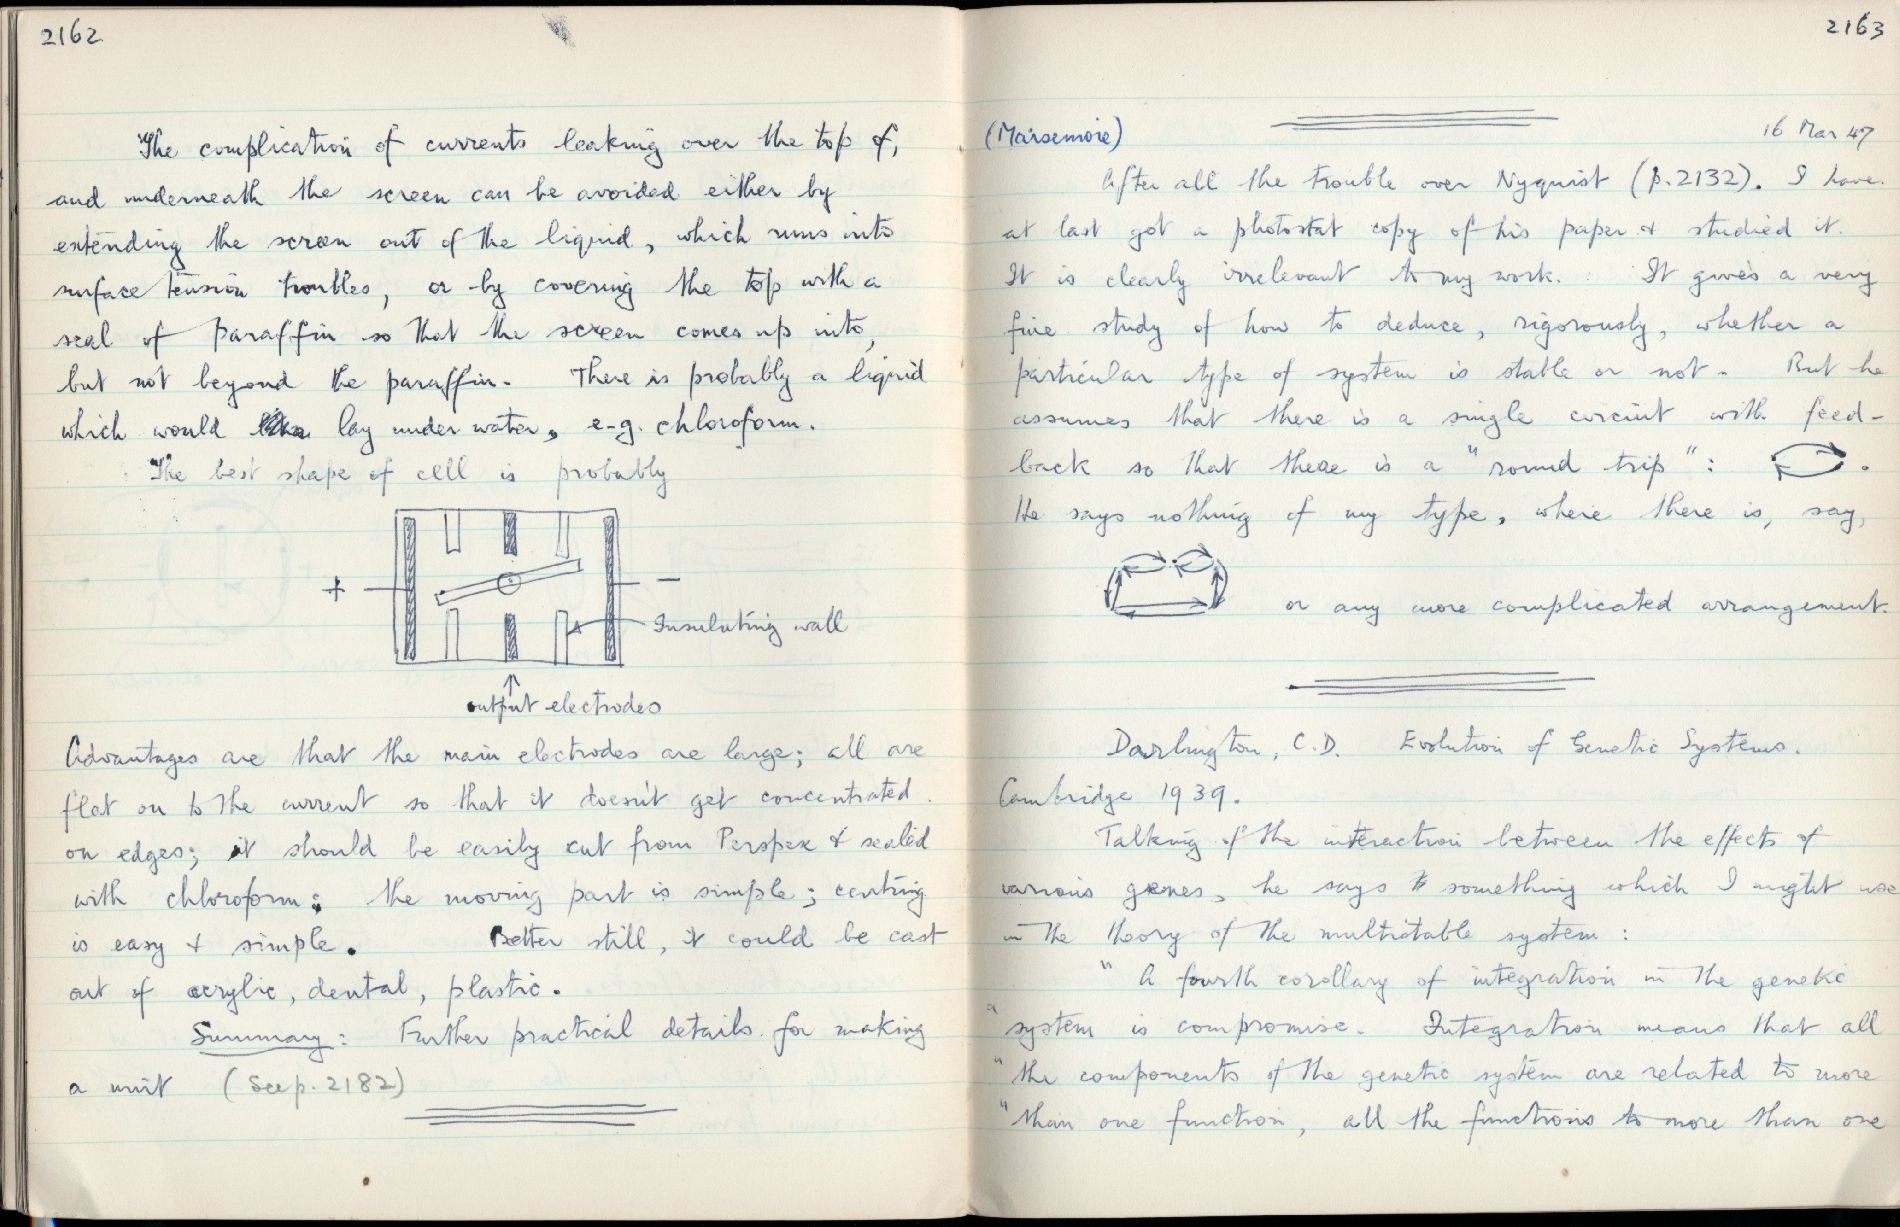 2162
The complication of currents leaking over the top of,
and underneath the screen can be avoided either by
extending the screen out of the liquid, which runs into
surface tension troubles, or by covering the top with a
seal of paraffin so that the screen comes up into,
but not beyond the paraffin. There is probably a liquid
which would lay under water, e.g. chloroform.
The best shape of cell is probably
+ −
Insulating wall
↑
output electrodes
Advantages are that the main electrodes are large; all are
flat on to the current so that it doesn't get concentrated
on edges; it should be easily cut from Perspex & sealed
with chloroform; the moving part is simple; centring
is easy & simple. Better still, it could be cast
out of acrylic, dental, plastic.
Summary: Further practical details for making
a unit (See p. 2182)
2163
16 Mar 47
After all the trouble over Nyquist (p.2132). I have
at last got a photostat copy of his paper & studied it.
It is clearly irrelevant to my work. It gives a very
fine study of how to deduce, rigorously, whether a
particular type of system is stable or not. But he
assumes that there is a single circuit with feed-
back so that there is a "round trip": .
He says nothing of my type, where there is, say,
or any more complicated arrangement.
Darlington, C.D. Evolution of Genetic Systems.
Cambridge 1939.
Talking of the interaction between the effects of
various genes, he says something which I might use
in the theory of the multistable system:
" A fourth corollary of integration in the genetic
" system is compromise. Integration means that all
" the components of the genetic system are related to more
" than one function, all the functions to more than one